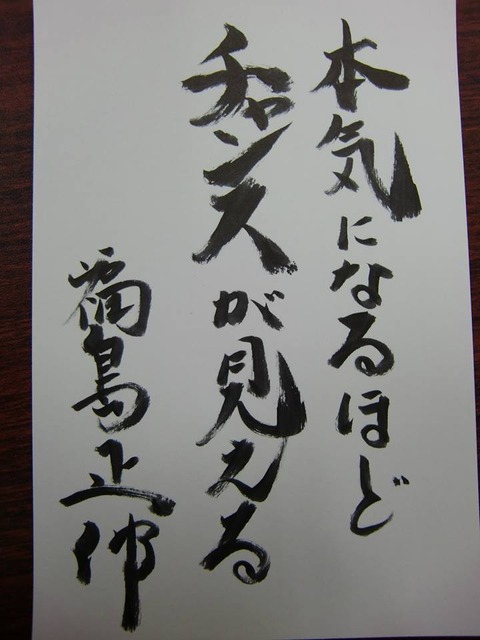 本気になるほど
チャンスが見える
福島正伸